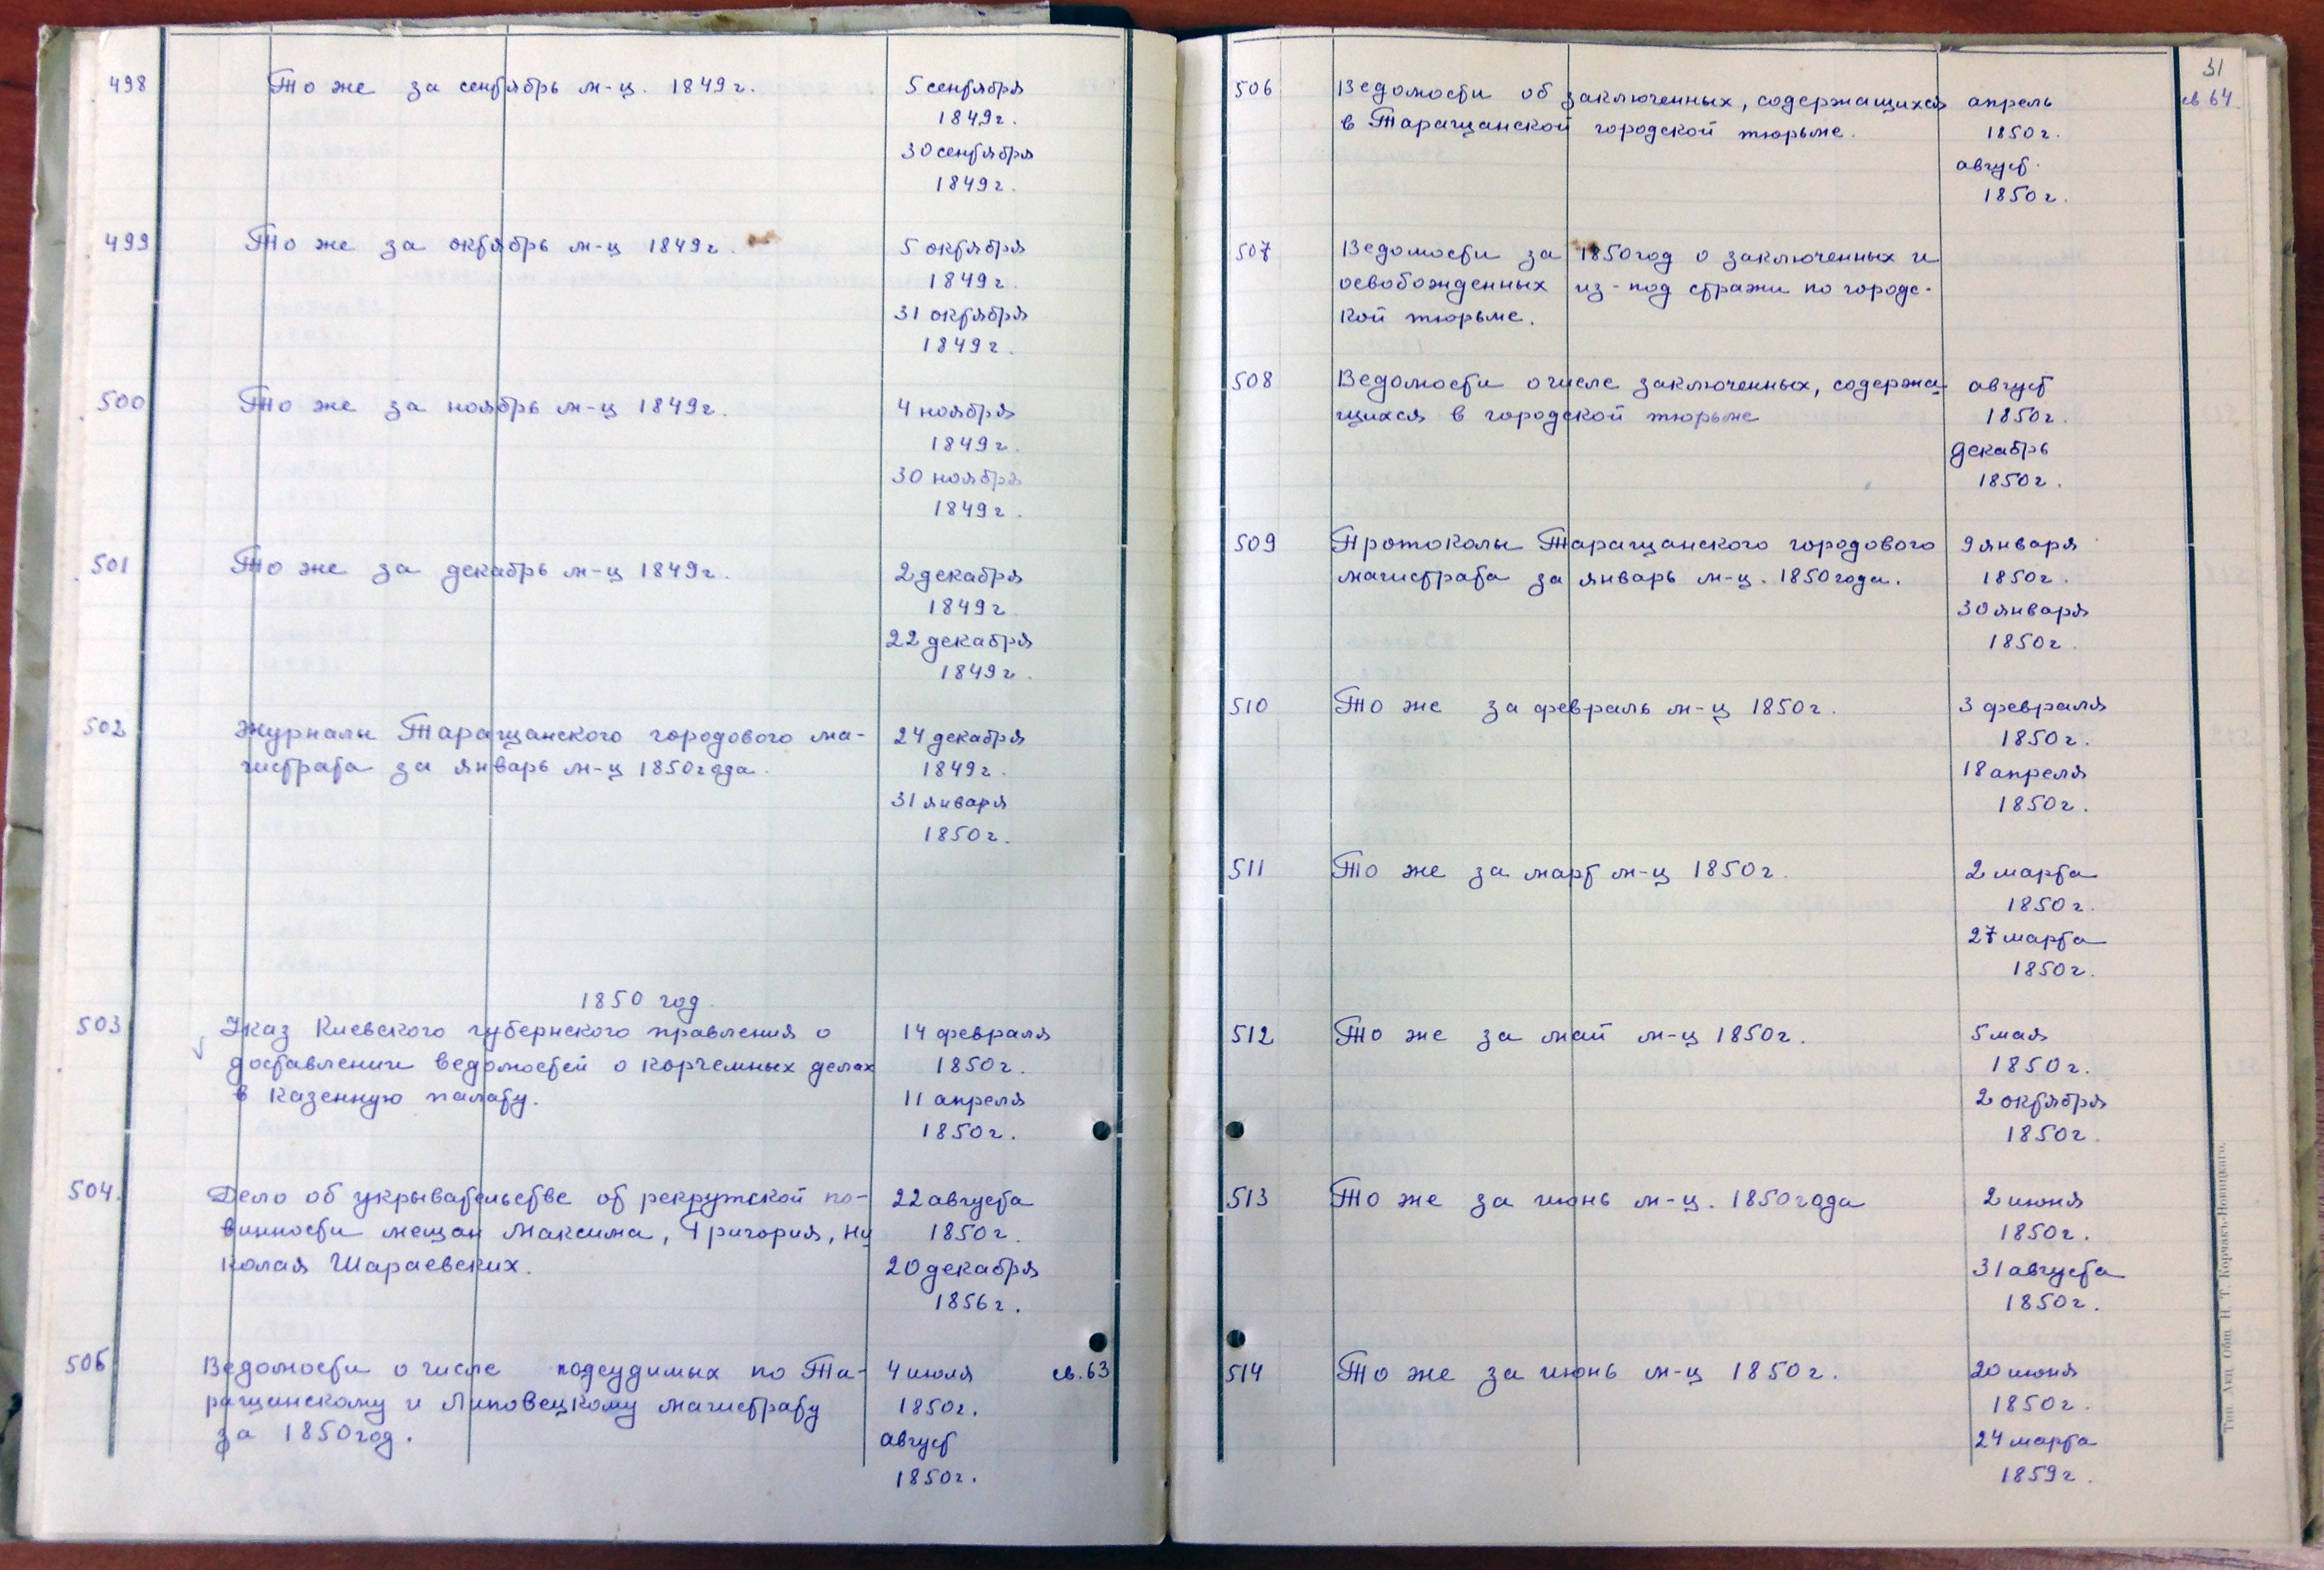 498 То же за сентябрь м-ц. 1849г. 5 сентября
1849г.
30 сентября
1849г.
499 То же за октябрь м-ц 1849г. 5 октября
1849г.
31 октября
1849г.
500 То же за ноябрь м-ц 1849г. 4 ноября
1849г.
30 ноября
1849г.
501 То же за декабрь м-ц 1849г. 2 декабря
1849г.
22 декабря
1849г.
502 Журналы Таращанского городового ма- 24 декабря
гистрата за январь м-ц 1850года. 1849г.
31 января
1850г.
1850 год.
503 Указ Киевского губернского правления о 14 февраля
доставлении ведомостей о корчемных делах 1850г.
в казенную палату. 11 апреля
1850г.
504. Дело об укрывательстве от рекрутской по- 22 августа
винности мещан Максима, Григория, Ни 1850г.
колая Шараевских. 20 декабря
1856г.
505 Ведомости о числе подсудимых по Та- 4 июля св. 63
ращанскому и Липовецкому магистрату 1850г.
за 1850год. август
1850г.
31
506 Ведомости об заключенных, содержащихся апрель св 64.
в Таращанской городской тюрьме. 1850г.
август.
1850г.
507 Ведомости за 1850год о заключенных и
освобожденных из-под стражи по городс-
кой тюрьме.
508 Ведомости о числе заключенных, содержа- август
щихся в городской тюрьме 1850г.
декабрь
1850г.
509 Протоколы Таращанского городового 9 января
магистрата за январь м-ц. 1850года. 1850г.
30 января
1850г.
510 То же за февраль м-ц 1850г. 3 февраля
1850г.
18 апреля
1850г.
511 То же за март м-ц 1850г. 2 марта
1850г.
27 марта
1850г.
512 То же за май м-ц 1850г. 5 мая
1850г.
2 октября
1850г.
513 То же за июнь м-ц. 1850года 2 июня
1850г.
31 августа
1850г.
514 То же за июнь м-ц 1850г. 20 июня
1850г.
24 марта
1859г.
Тип. Акц. Общ. Н. Т. Корчакъ-Новицкаго.